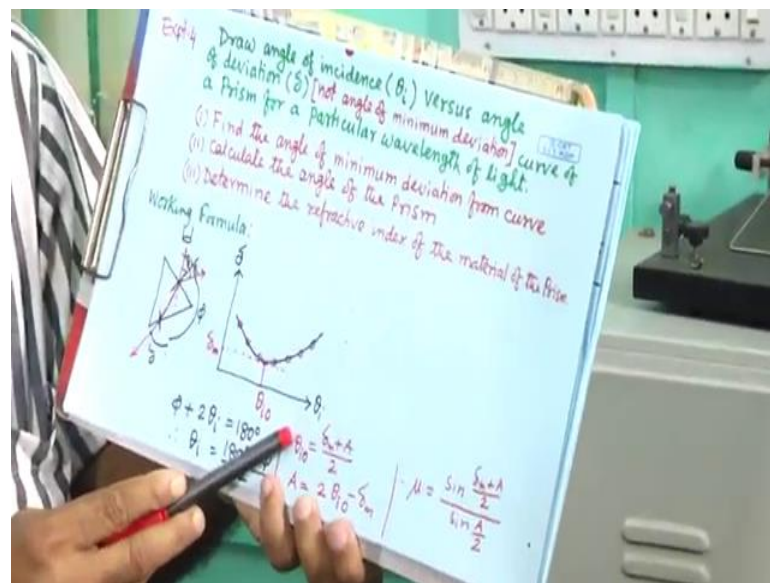 Expt:4 Draw angle of incidence (θi) versus angle
of deviation (δ) [not angle of minimum deviation] curve of
a Prism for a Particular wavelength of light.
(i) Find the angle of minimum deviation from curve
(ii) Calculate the angle of the Prism
(iii) Determine the refractive index of the material of the Prism
Working Formula:
δ
φ
δ
δm
θio
θi
φ + 2θi = 180°
∴ θi =
θio = (δm + A)/2
A = 2θio - δm
μ = sin (δm + A)/2 / sin A/2